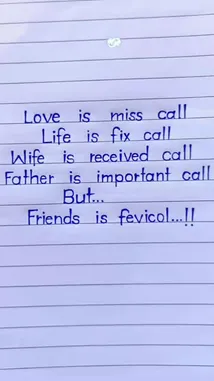 Love is miss call
Life is fix call
Wife is received call
Father is important call
But...
Friends is fevicol...!!